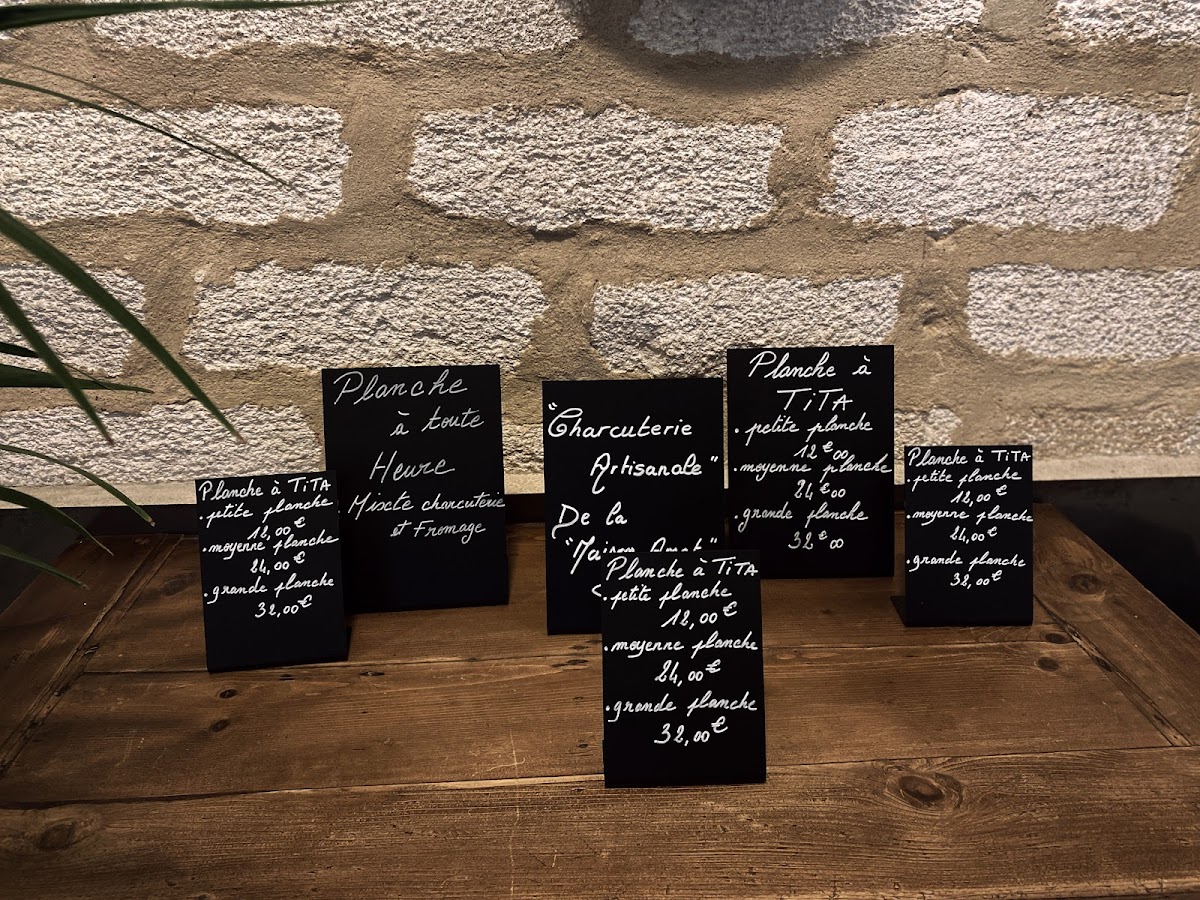 Planche à TiTA
. petite planche
12,00€
. moyenne planche
24,00€
. grande planche
32,00€
Planche
à toute
Heure
Mixte charcuterie
et Fromage
"Charcuterie
Artisanale"
De la
"Maison
Planche à TiTA
. petite planche
12,00€
. moyenne planche
24,00€
. grande planche
32,00€
Planche à
TiTA
. petite planche
12€00
. moyenne planche
24€00
. grande planche
32€00
Planche à TiTA
. petite planche
12,00€
. moyenne planche
24,00€
. grande planche
32,00€